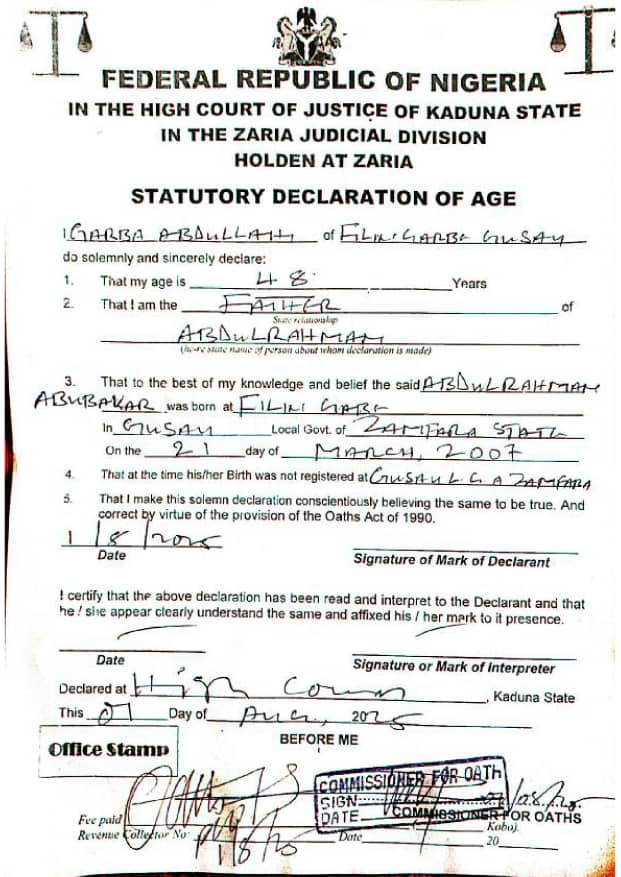 FEDERAL REPUBLIC OF NIGERIA
IN THE HIGH COURT OF JUSTICE OF KADUNA STATE
IN THE ZARIA JUDICIAL DIVISION
HOLDEN AT ZARIA
STATUTORY DECLARATION OF AGE
I GARBA ABDULLAHI of FILINI GARBE GUSAU
do solemnly and sincerely declare:
1. That my age is 48 Years
2. That I am the FATHER of
State relationship
ABDULRAHMAN
(here state name of person about whom declaration is made)
3. That to the best of my knowledge and belief the said ABDULRAHMAN
ABUBAKAR was born at FILINI GARBE
In GUSAU Local Govt. of ZAMFARA STATE
On the 21 day of MARCH, 2007
4. That at the time his/her Birth was not registered at GUSAU L.G.A ZAMFARA
5. That I make this solemn declaration conscientiously believing the same to be true. And
correct by virtue of the provision of the Oaths Act of 1990.
1/8/2025
Date
Signature of Mark of Declarant
I certify that the above declaration has been read and interpret to the Declarant and that
he / she appear clearly understand the same and affixed his / her mark to it presence.
Date
Signature or Mark of Interpreter
Declared at High Court, Kaduna State
This 01 Day of Aug, 2025
BEFORE ME
Office Stamp
COMMISSIONER FOR OATH
SIGN
DATE
COMMISSIONER FOR OATHS
Fee paid Kobo).
Revenue Collector No Date 20
1/8/25